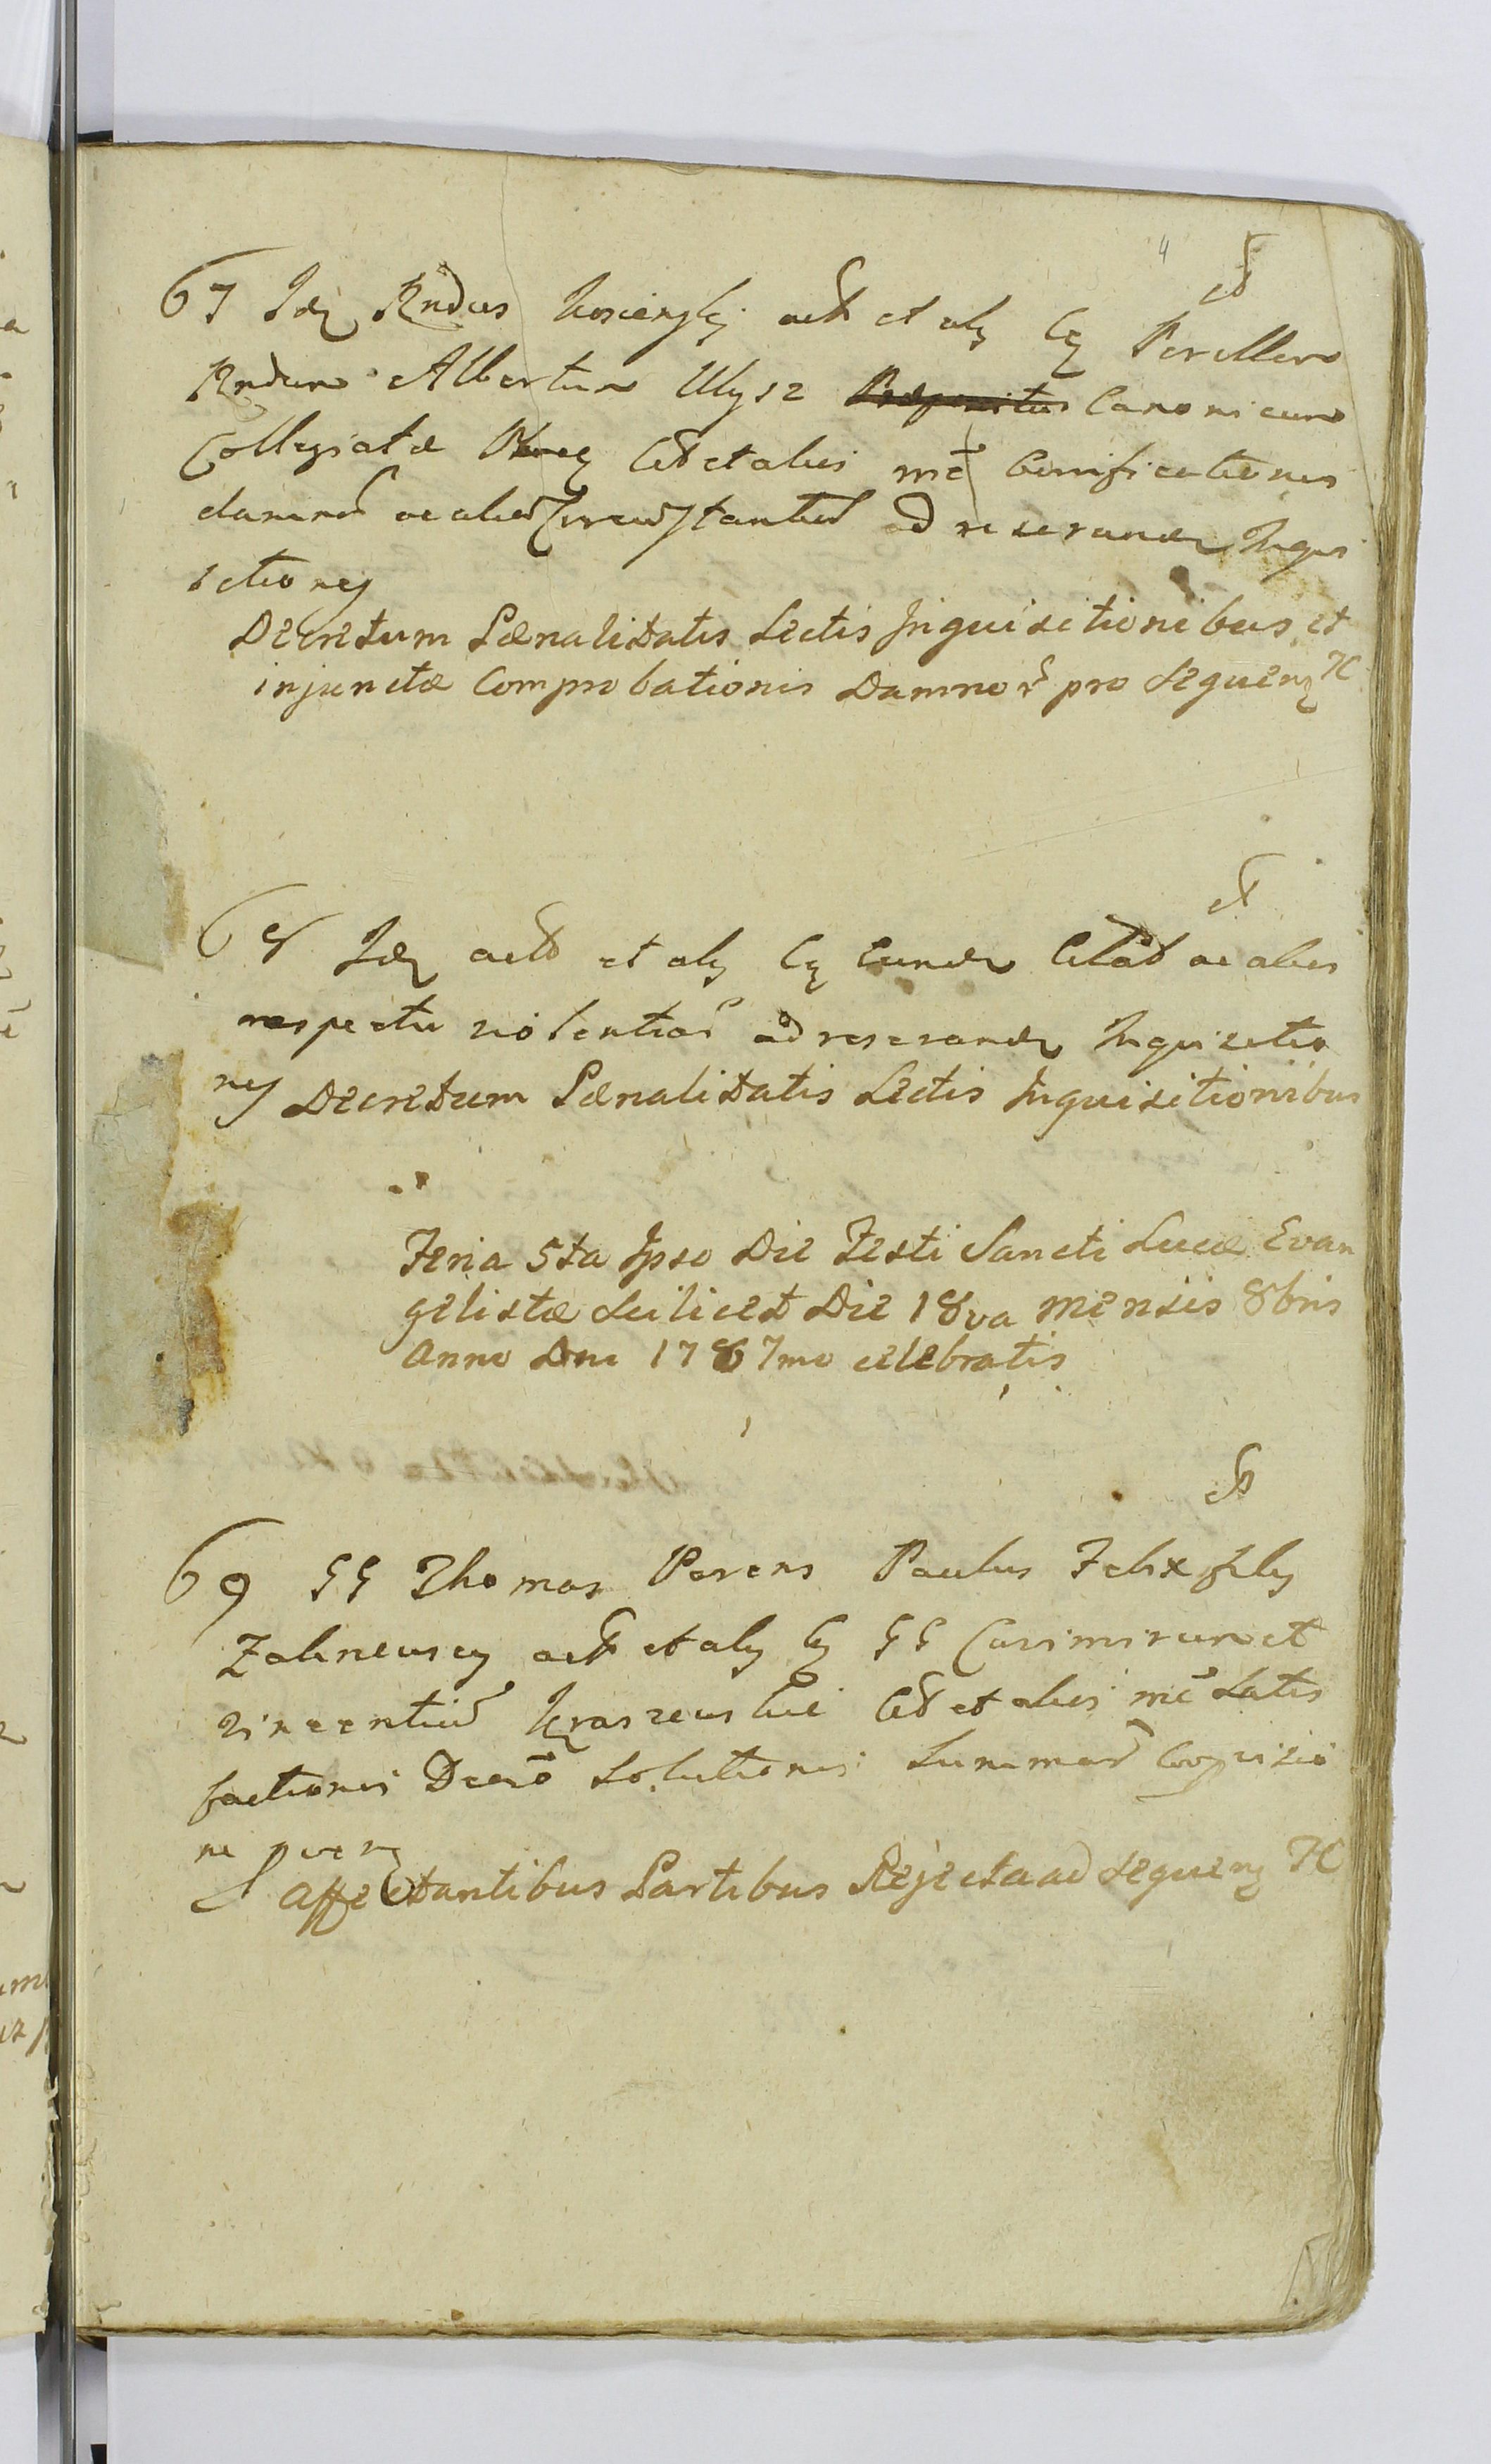 4
67 Idę Rndus Koscieński actt et alij Cę Perillem
Rndum Albertum Ulysz Præpositus Canonicum
Collegiatæ Citt et alios mē bonificationis
damnor̃ ac aliar̃ Circumstantiar̃ ad reserandę Inqui
sitiones
Decretum Pœnalitatis Lectis Inquisitionibus et
injunctæ Comprobationis Damnor̃ pro sequenę
68 Idę actt et alij Cę Eundę Citat ac alios
respectu violentiar̃ ad reserandę Inquisitio
nes Decretum Pœnalitatis Lectis Inquisitionibus
Feria 5ta Ipso Die Festi Sancti Lucæ Evan
gelistæ Scilicet Die 18va Mensis 8bris
Anno Dni 1787mo celebratis
69 GG Thomas Parens Paulus Felix filij
Zalinewscy actt et alij Cę GG Casimirum et
Vincentiũ Kraszewskie Citt et alios mē Satis
factionis Decrõ Solutionis Summar̃ Cognitio
ne
Affectantibus Partibus Rejecta ad sequenę